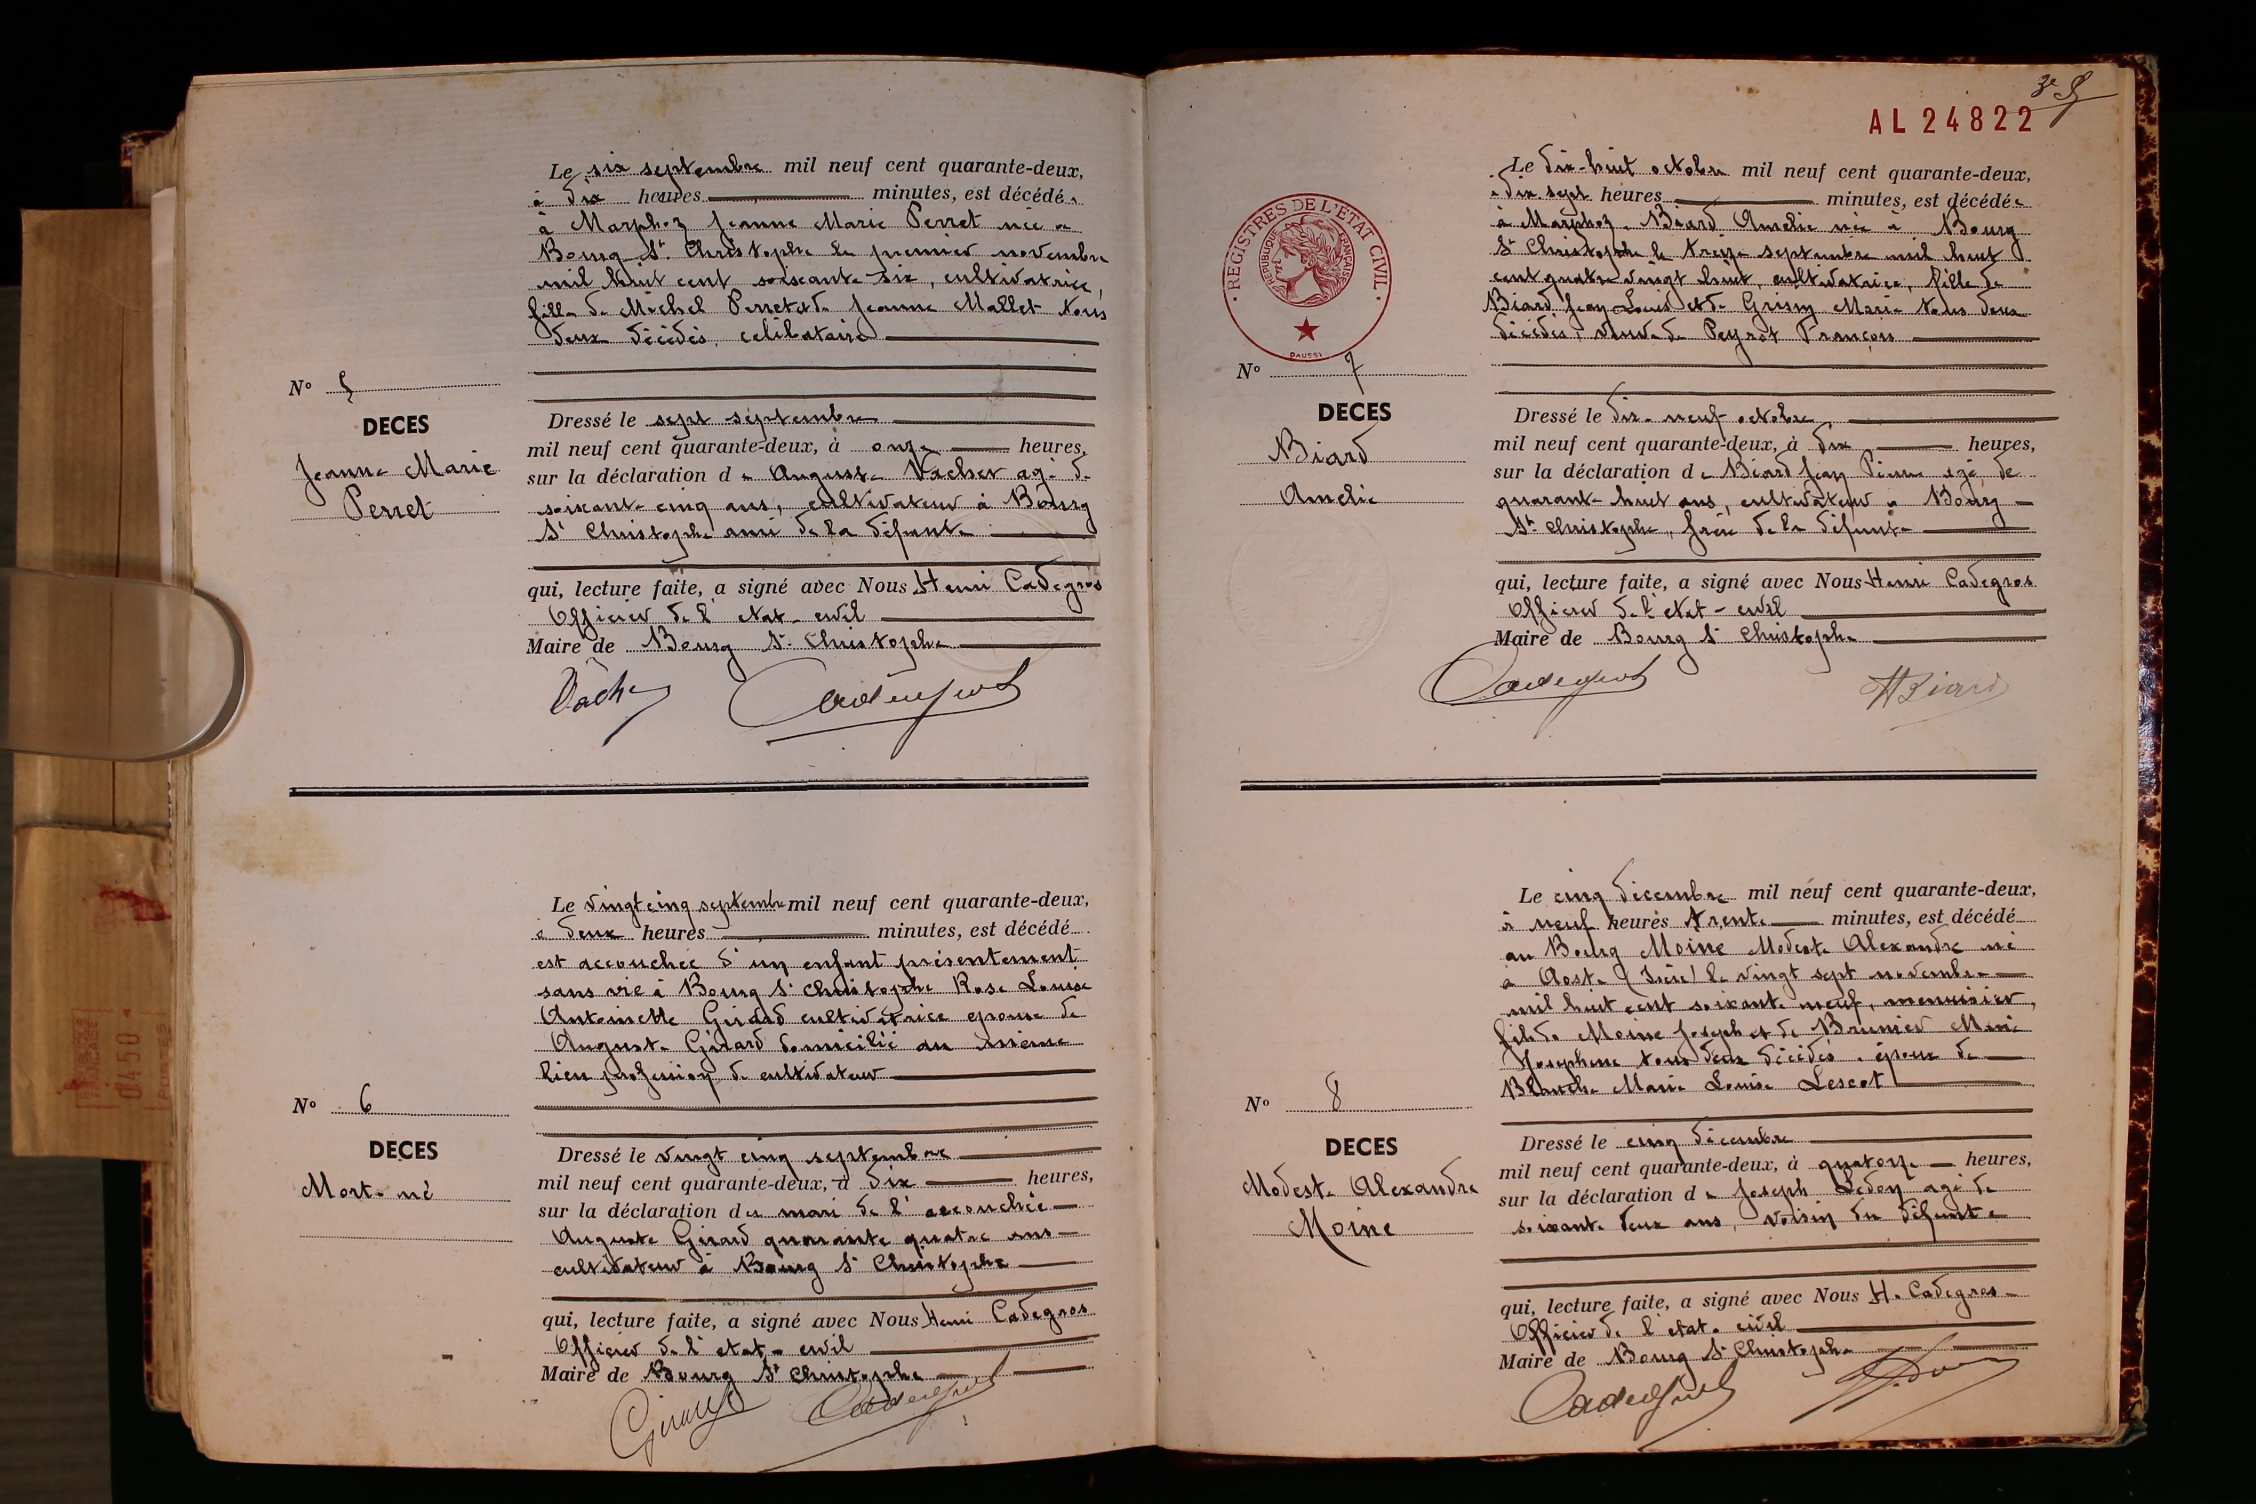 Le six septembre mil neuf cent quarante-deux,
à dix heures minutes, est décédé e
à Marphoz Jeanne Marie Perret née à
Bourg St Christophe le premier novembre
mil huit cent soixante six, cultivatrice,
fille de Michel Perret et de Jeanne Mallet tous
deux décédés, celibataire
N° 5
DECES
Jeanne Marie
Perret
Dressé le sept septembre
mil neuf cent quarante-deux, à onze heures,
sur la déclaration d e Auguste Vacher agé de
soixante cinq ans, cultivateur à Bourg
St Christophe ami de la défunte
qui, lecture faite, a signé avec Nous Henri Cadegros
Officier de l'etat-civil
Maire de Bourg St Christophe
Vacher Cadegros
Le vingt cinq septembre mil neuf cent quarante-deux,
à deux heures minutes, est décédé
est accouchée d'un enfant présentement
sans vie à Bourg St Christophe Rose Louise
Antoinette Girard cultivatrice epouse de
Auguste Girard domicilié au même
lieu profession de cultivateur
N° 6
DECES
Mort-né
Dressé le vingt cinq septembre
mil neuf cent quarante-deux, à dix heures,
sur la déclaration du mari de l'accouchée
Auguste Girard quarante quatre ans
cultivateur à Bourg St Christophe
qui, lecture faite, a signé avec Nous Henri Cadegros
Officier de l'etat-civil
Maire de Bourg St Christophe
Girard Cadegros
3e
AL 24822
REGISTRES DE L'ETAT CIVIL
REPUBLIQUE FRANÇAISE
DAUSSI
Le dix-huit octobre mil neuf cent quarante-deux,
à dix sept heures minutes, est décédé e
à Marphoz, Biard Amelie née à Bourg
St Christophe le treize septembre mil huit
cent quatre vingt huit, cultivatrice, fille de
Biard Jean Louis et de Grisny Marie tous deux
décédés, veuve de Peyrot François
N° 7
DECES
Biard
Amelie
Dressé le dix-neuf octobre
mil neuf cent quarante-deux, à dix heures,
sur la déclaration d e Biard Jean Pierre agé de
quarante huit ans, cultivateur à Bourg
St Christophe, frère de la défunte
qui, lecture faite, a signé avec Nous Henri Cadegros
Officier de l'etat-civil
Maire de Bourg St Christophe
Cadegros Biard
Le cinq décembre mil neuf cent quarante-deux,
à neuf heures trente minutes, est décédé
au Bourg Moine Modeste Alexandre né
à Aoste (Isère) le vingt sept novembre
mil huit cent soixante neuf, menuisier,
fils de Moine Joseph et de Brunier Marie
Josephine tous deux décédés. époux de
Blanche Marie Louise Lescot
N° 8
DECES
Modeste Alexandre
Moine
Dressé le cinq décembre
mil neuf cent quarante-deux, à quatorze heures,
sur la déclaration d e Joseph agé de
soixante deux ans, voisin du défunt
qui, lecture faite, a signé avec Nous H. Cadegros
Officier de l'etat-civil
Maire de Bourg St Christophe
Cadegros
0450